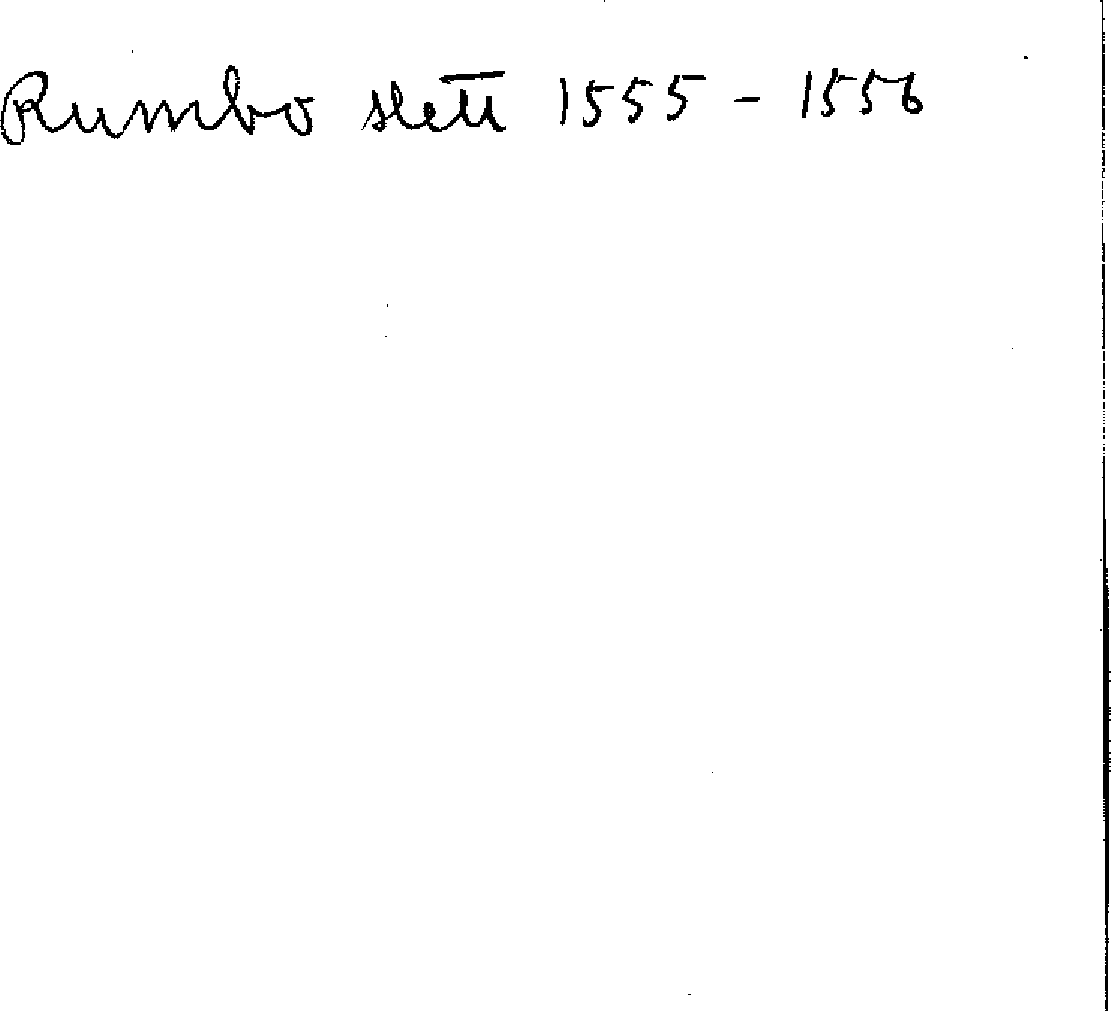 Rumbo slett 1555 - 1556